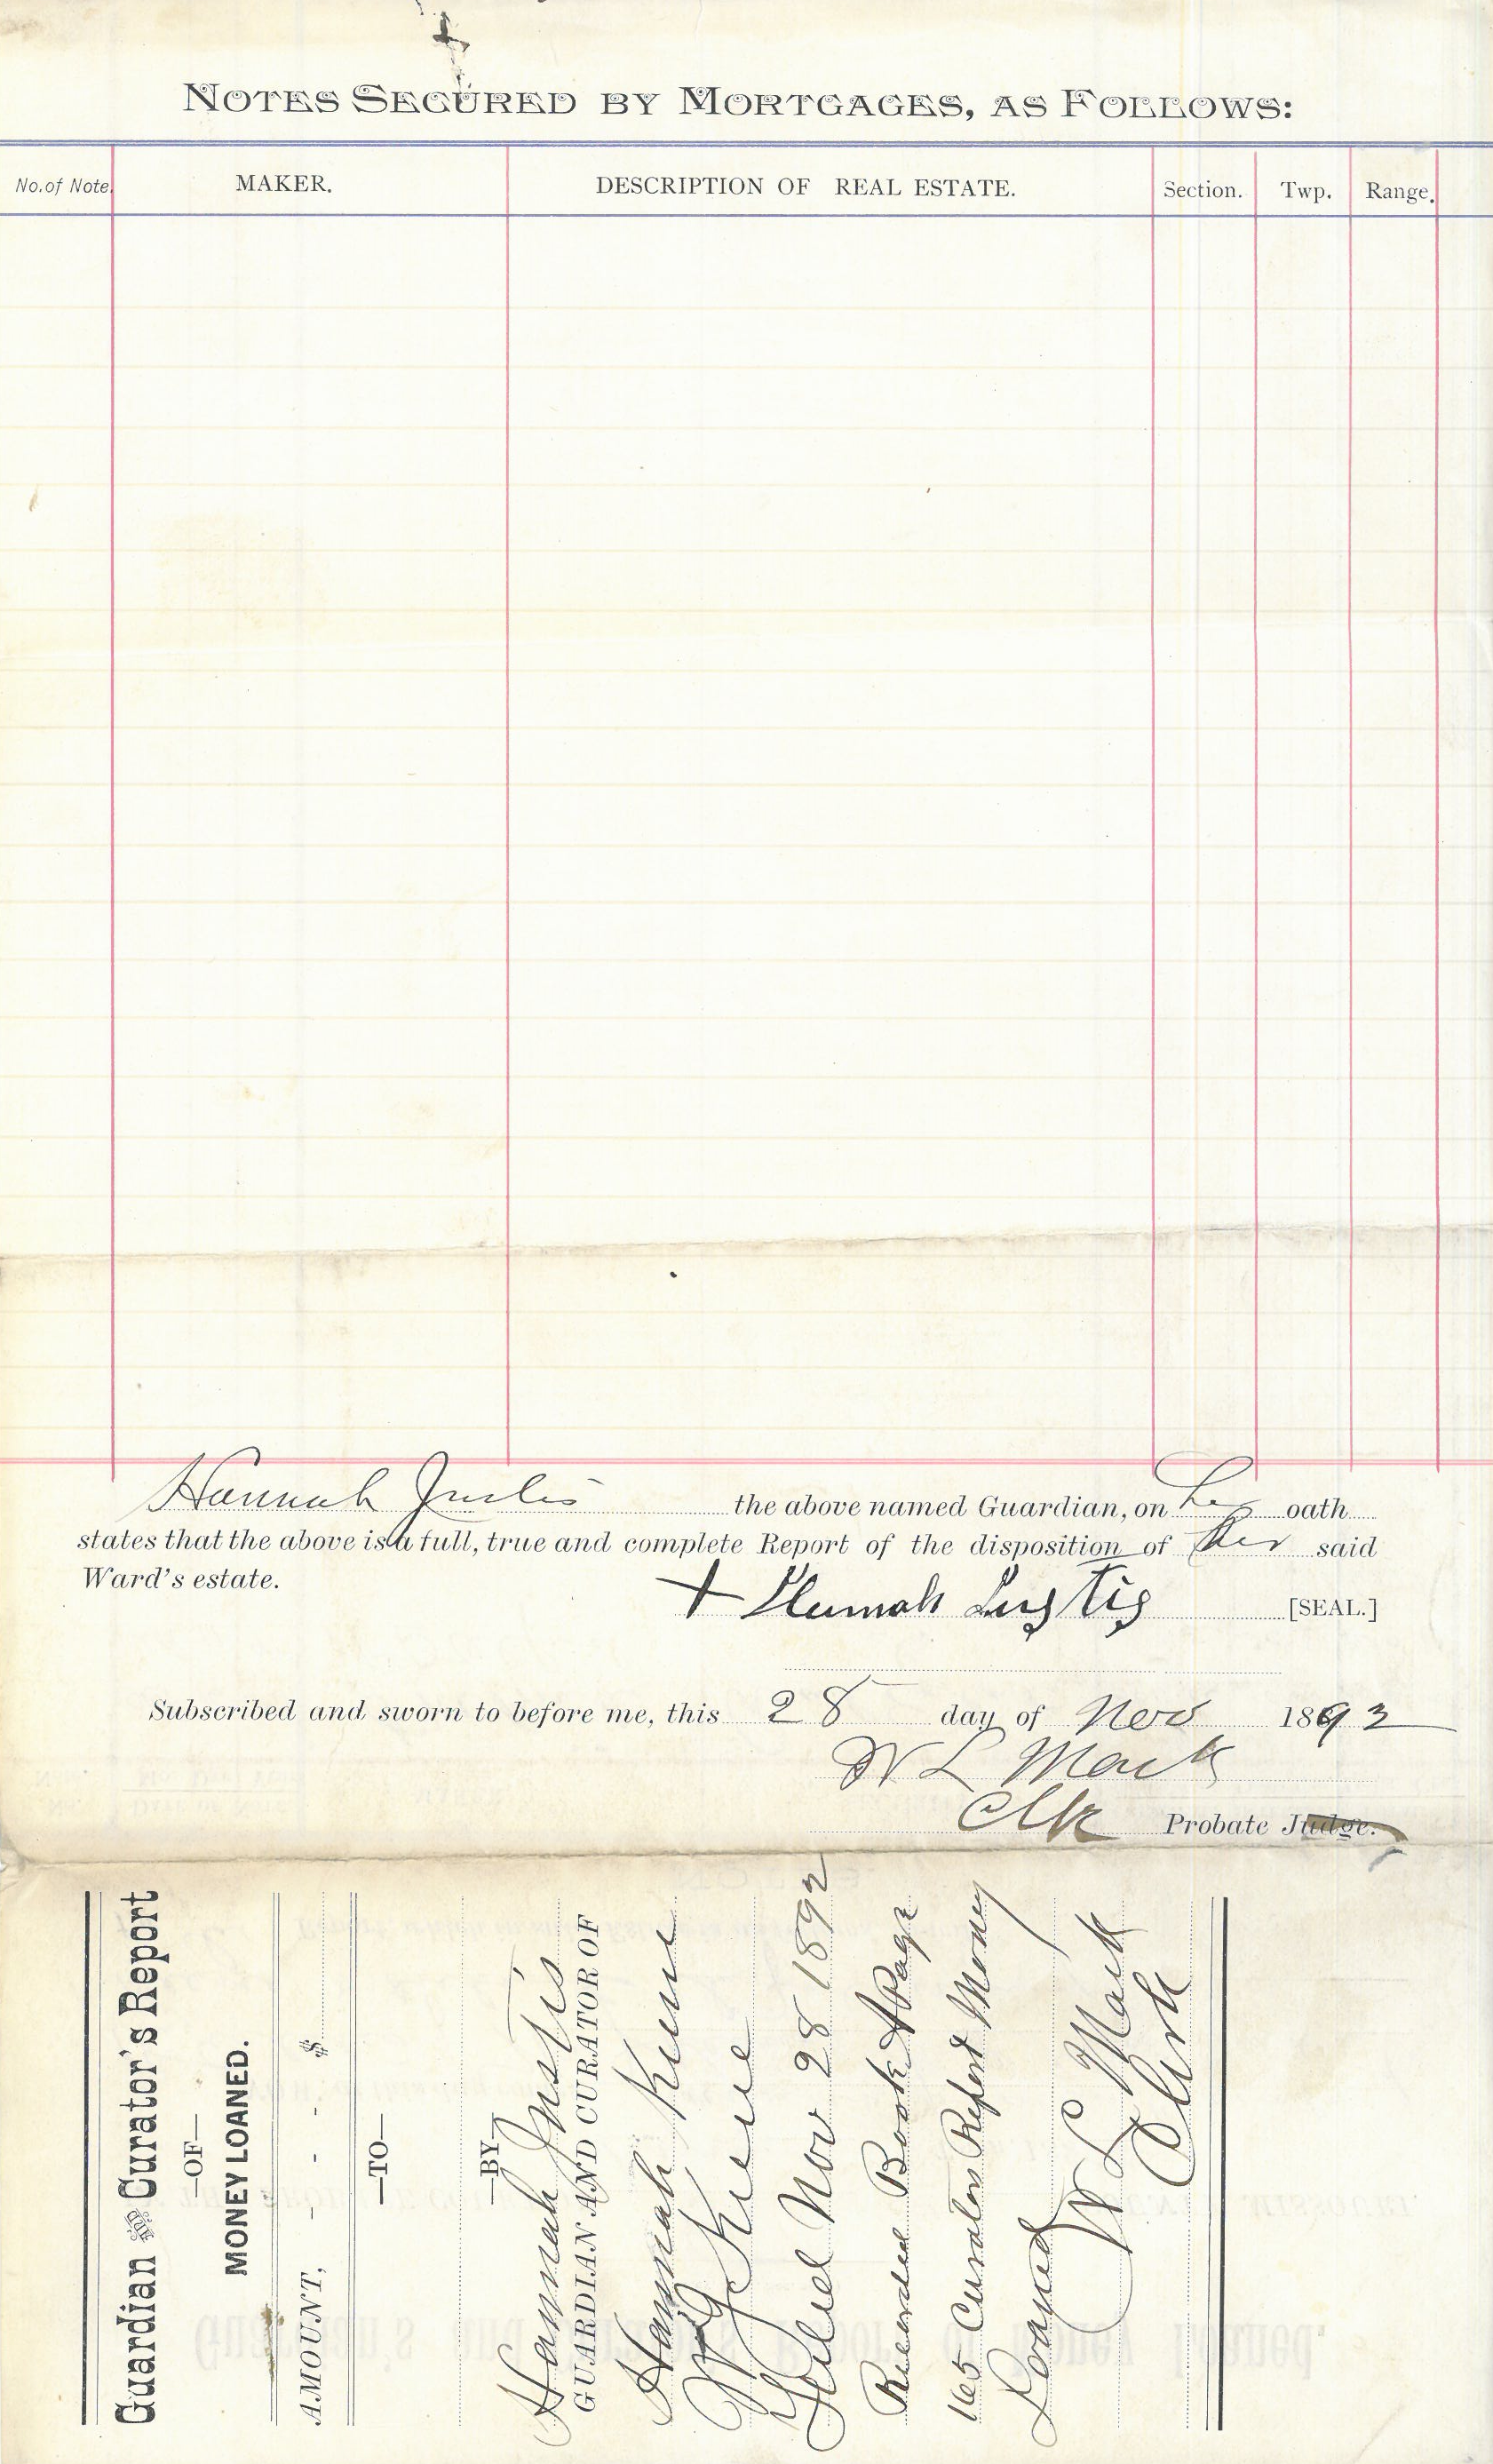 NOTES SECURED BY MORTGAGES, AS FOLLOWS:
No. of Note. MAKER. DESCRIPTION OF REAL ESTATE. Section. Twp. Range.
Hannah Justis the above named Guardian, on her oath
states that the above is a full, true and complete Report of the disposition of her said
Ward's estate.
+ Hannah [SEAL.]
Subscribed and sworn to before me, this 28 day of Nov 1892
W L Mack
Clk Probate Judge.
Guardian and Curator's Report
—OF—
MONEY LOANED.
AMOUNT, - - - $
—TO—
—BY—
Hannah Justis
GUARDIAN AND CURATOR OF
Hannah Kune
W J Kune
Filed Nov 28 1892
Recorded Book A Page
165 Curators Report Money
Loaned
W L Mack
Clerk